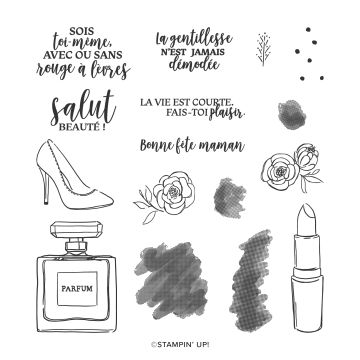 SOIS
toi-même,
AVEC OU SANS
rouge à lèvres
La gentillesse
N'EST JAMAIS
démodée
salut
BEAUTÉ !
LA VIE EST COURTE.
FAIS-TOI plaisir.
Bonne fête maman
PARFUM
©STAMPIN' UP!